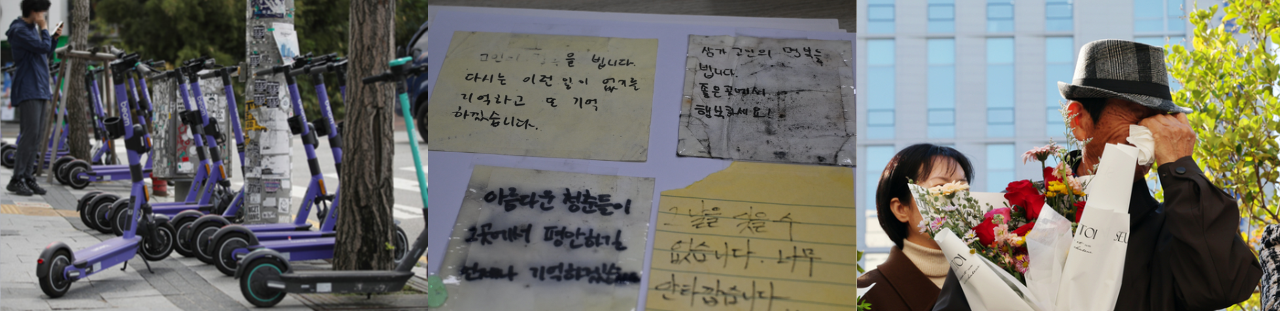 빕니다.
다시는 이런 일이 없게
기억하고 또 기억
하겠습니다.
삼가 고인의 명복을
빕니다.
좋은곳에서
행복하세요!
아름다운 청춘들이
그곳에서 평안하길
언제나 기억하겠습니다
그 날을 잊을 수
없습니다. 너무
안타깝습니다